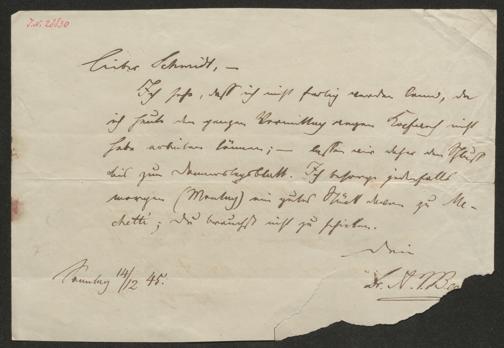 I.N. 28830
Lieber Schmidt, –
Ich sehe, daß ich nicht fertig werden kann, da
ich heute den ganzen Vormittag wegen Kopfweh nicht
habe arbeiten können; – lassen wir daher den Schluß
bis zum Donnerstagsblatt. Ich besorge jedenfalls
morgen (Montag) ein gutes Stück davon zu Me-
chetti; du brauchst nicht zu schicken.
Dein
Sonntag 14/12 45.
Dr. A. J. B